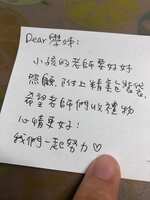 Dear 學姊：
小孩的老師要好好
照顧，附上精美包裝袋，
希望老師們收禮物
心情更好！
我們一起努力♡